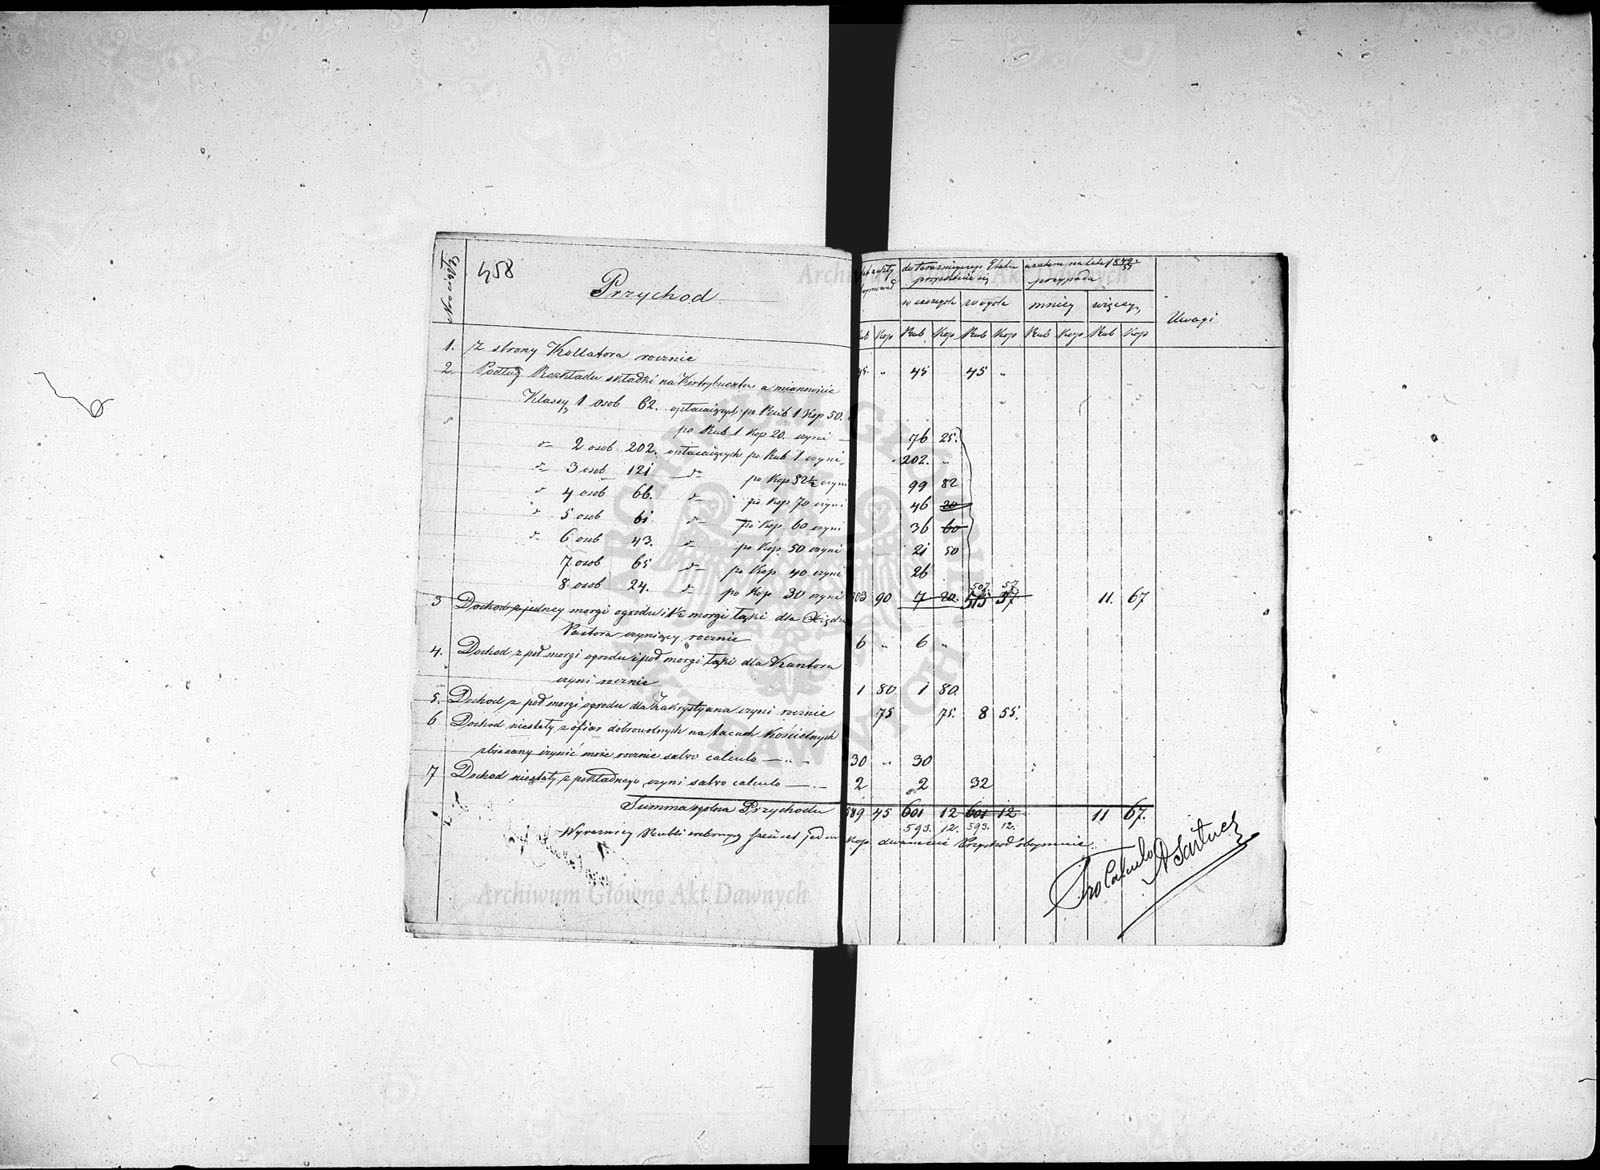 458
Przychod
Uwagi
mniey więcey
Kop Rub Kop Rub Kop Rub Kop Rub Kop
1. Z strony Kollatora rocznie
45 45
2. Podług Rozkładu składki na Kontrybuentów a mianowicie
Klassy 1 osob 62. opłacaiących po Rub 1 Kop 50.
po Rub 1 Kop 20. czyni 76 25.
2 osob 202. opłacaiących po Rub 1 czyni 202.
3 osob 121 po Kop 82½ czyni 99 82
4 osob 66. po Kop 70 czyni 46 20
5 osob 61 po Kop. 60 czyni 36 60
6 osob 43. po Kop. 50 czyni 21 50
7 osob 65 po Kop 40 czyni 26
8 osob 24. po Kop 30 czyni 503 90 7 20. 513 57 11. 67
507 57
3 Dochod z jedney morgi ogrodu i ½ morgi łąki dla Xiędza
Pastora czyniący rocznie 6 6
4. Dochod z poł morgi ogrodu i poł morgi łąki dla Kantora
czyni rocznie 1 80 1 80.
5. Dochod z poł morgi ogrodu dla Zakrystyana czyni rocznie 75 75. 8 55.
6 Dochod niestały z ofiar dobrowolnych na tacach Kościelnych
zbierany czynić może rocznie salvo calculo 30 30
7 Dochod niestały z pokładnego czyni salvo calculo 2 2 32
Summa ogólna Przychodu 589 45 601 12 601 12 11 67.
593. 12. 593. 12.
Wyrazniey Rubli srebrnych sześćset jeden Kop. dwanaście Przychod obeymuie
Pro Calculo
Archiwum Główne Akt Dawnych
Archiwum Główne Akt Dawnych
ARCHIWUM GŁÓWNE AKT DAWNYCH